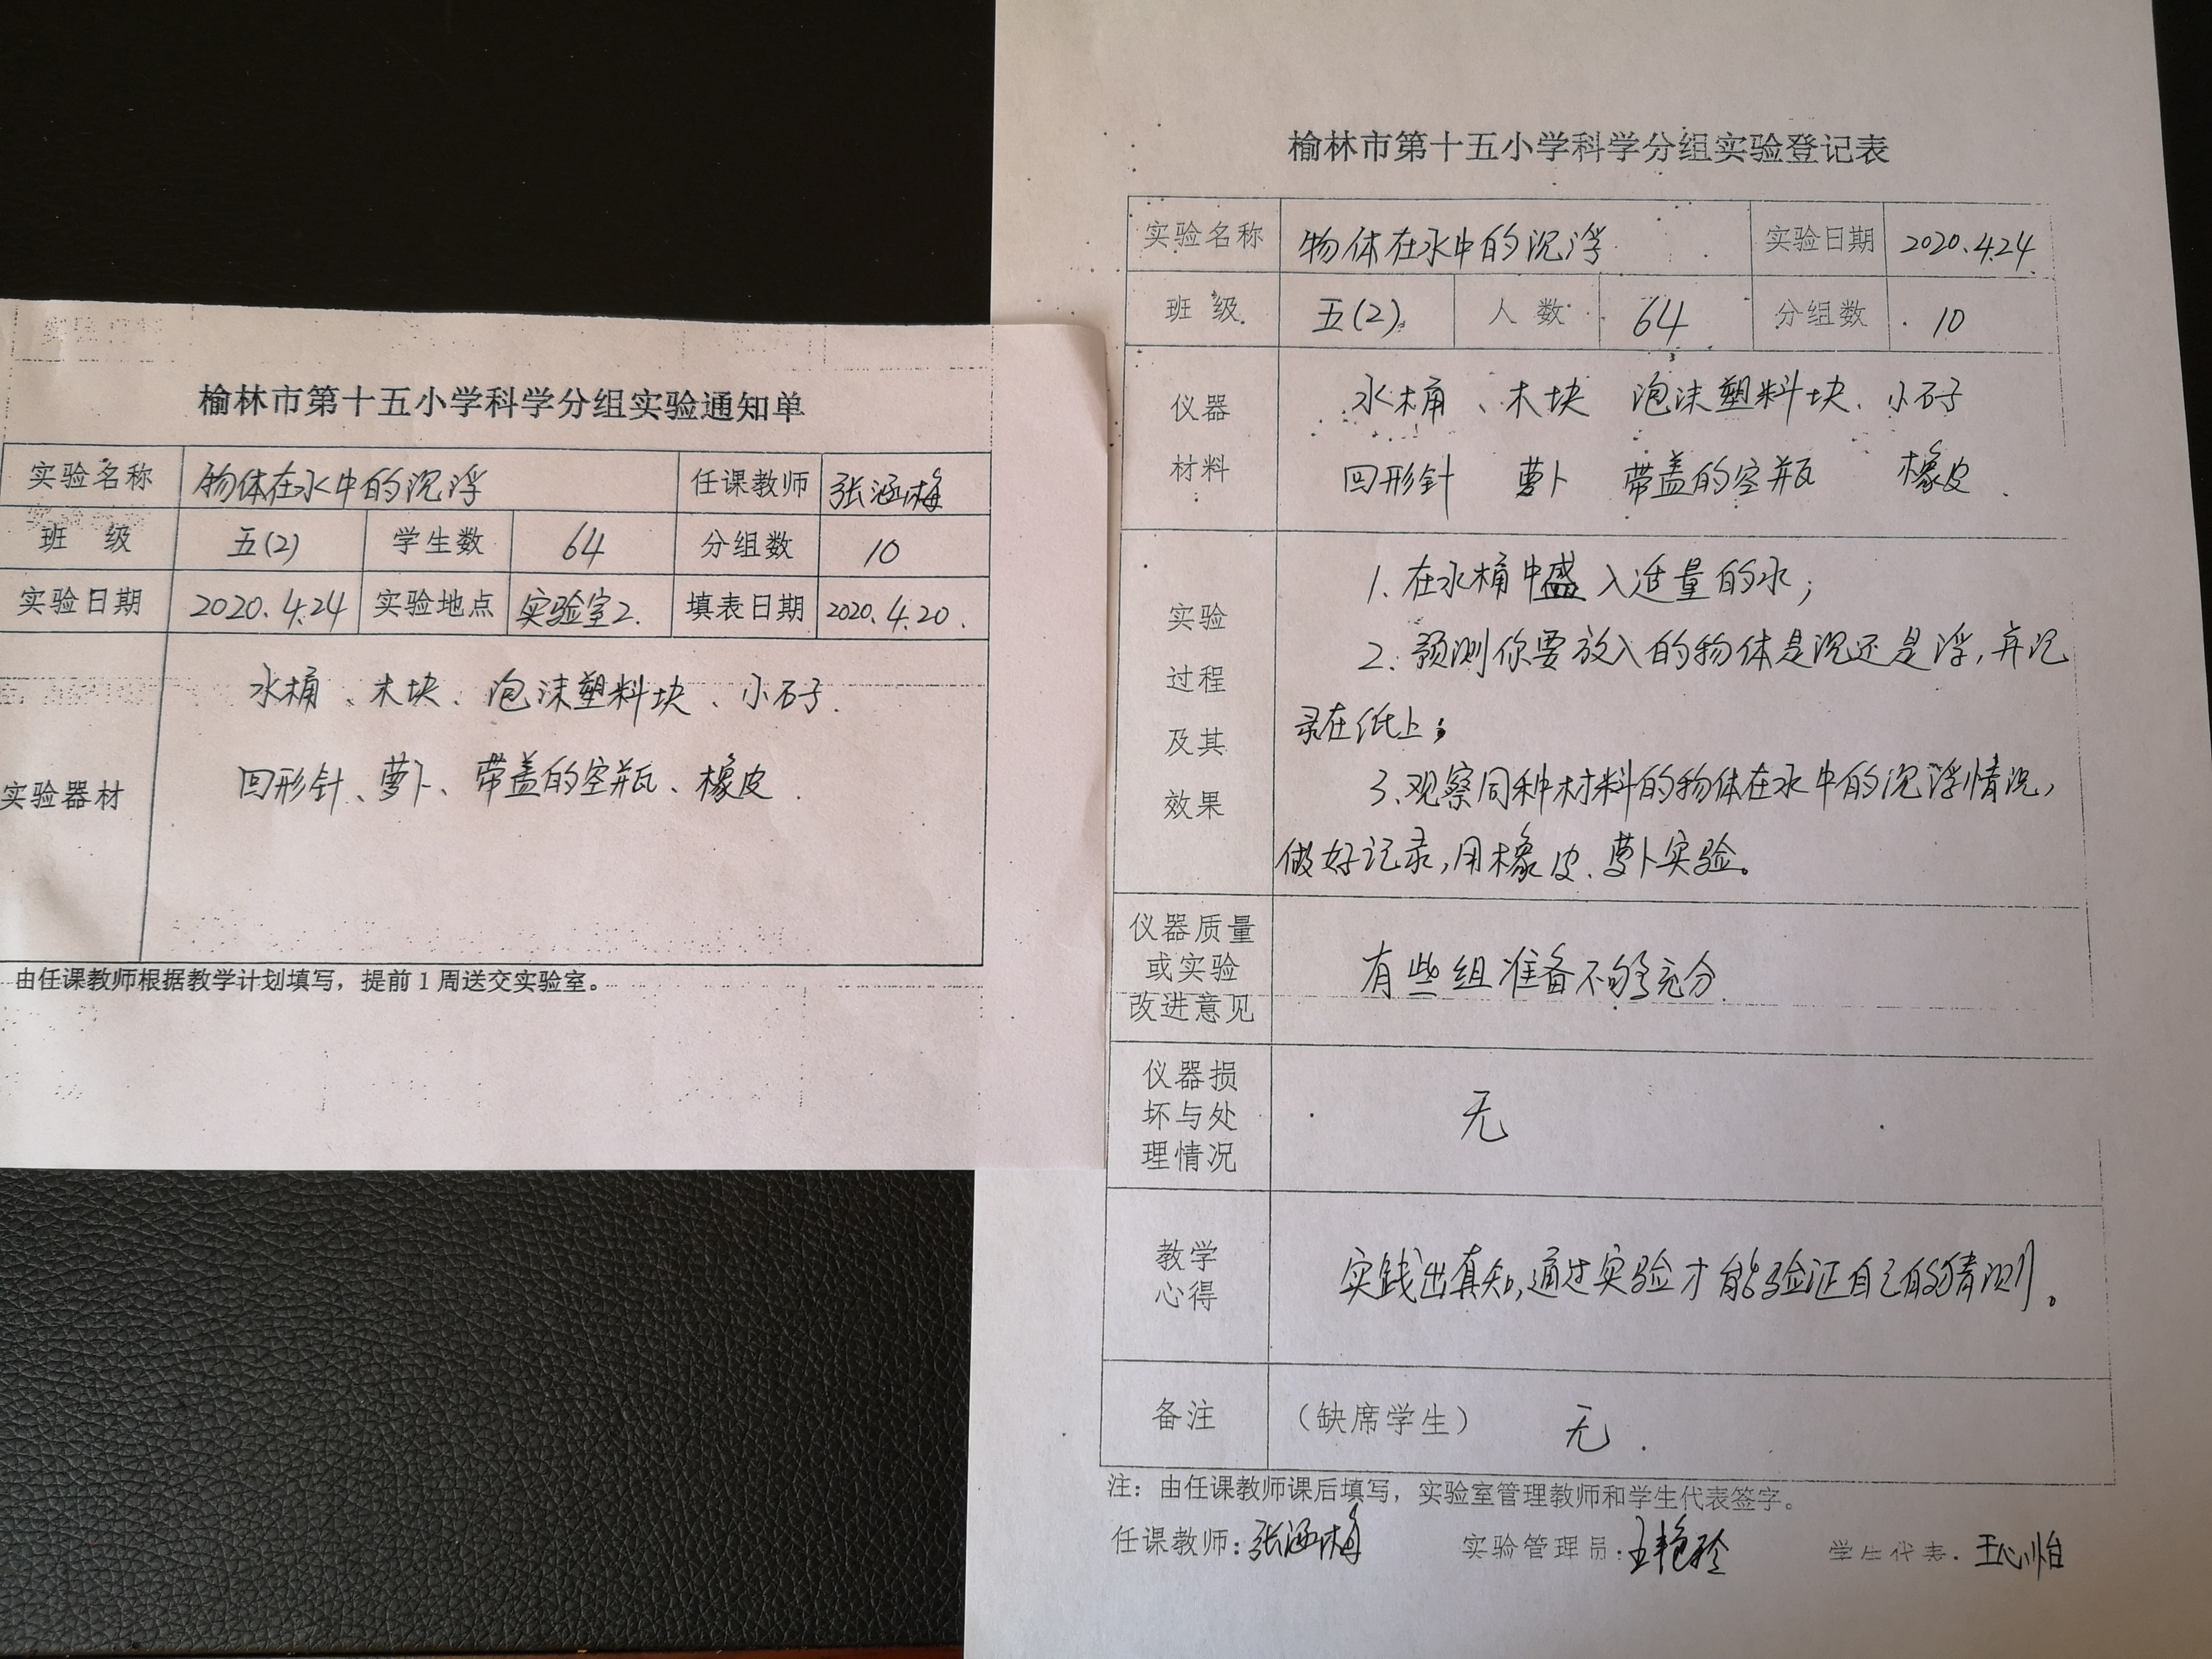 榆林市第十五小学科学分组实验通知单
实验名称 物体在水中的沉浮 任课教师 张涵梅
班 级 五(2) 学生数 64 分组数 10
实验日期 2020.4.24 实验地点 实验室2. 填表日期 2020.4.20.
实验器材
水桶、木块、泡沫塑料块、小石子.
回形针、萝卜、带盖的空瓶、橡皮.
由任课教师根据教学计划填写，提前1周送交实验室。
榆林市第十五小学科学分组实验登记表
实验名称 物体在水中的沉浮 实验日期 2020.4.24
班 级 五(2) 人 数 64 分组数 10
仪器
材料
水桶、木块 泡沫塑料块、小石子
回形针 萝卜 带盖的空瓶 橡皮.
实验
过程
及其
效果
1.在水桶中盛入适量的水;
2.预测你要放入的物体是沉还是浮,并记
录在纸上;
3.观察同种材料的物体在水中的沉浮情况,
做好记录,用橡皮、萝卜实验。
仪器质量
或实验
改进意见
有些组准备不够充分.
仪器损
坏与处
理情况
无
教学
心得
实践出真知,通过实验才能验证自己的猜测。
备注 （缺席学生） 无.
注：由任课教师课后填写，实验室管理教师和学生代表签字。
任课教师:张涵梅 实验管理员:王艳玲 学生代表.王心怡